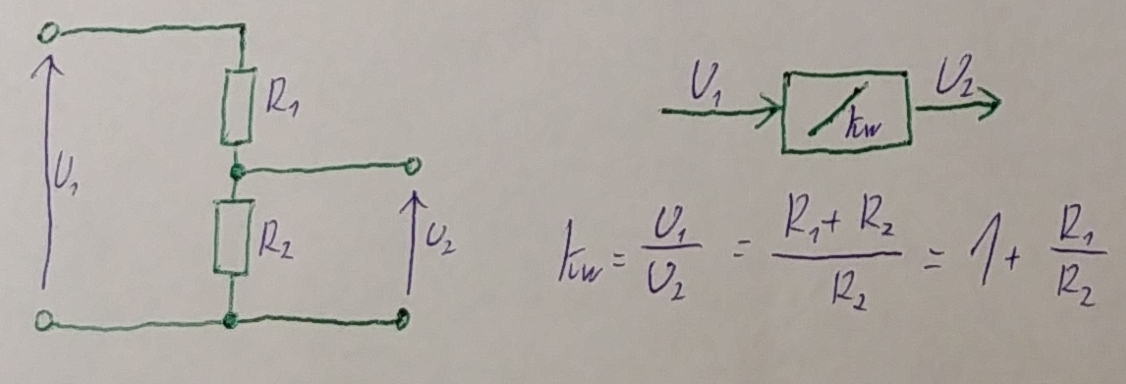 R₁
U₁
R₂
U₂
U₁
U₂
kw
kw = U₁/U₂ = (R₁ + R₂)/R₂ = 1 + R₁/R₂